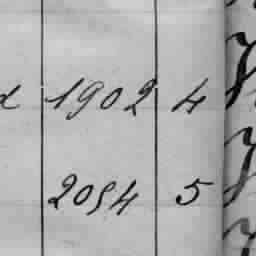 1902 4
2094 5